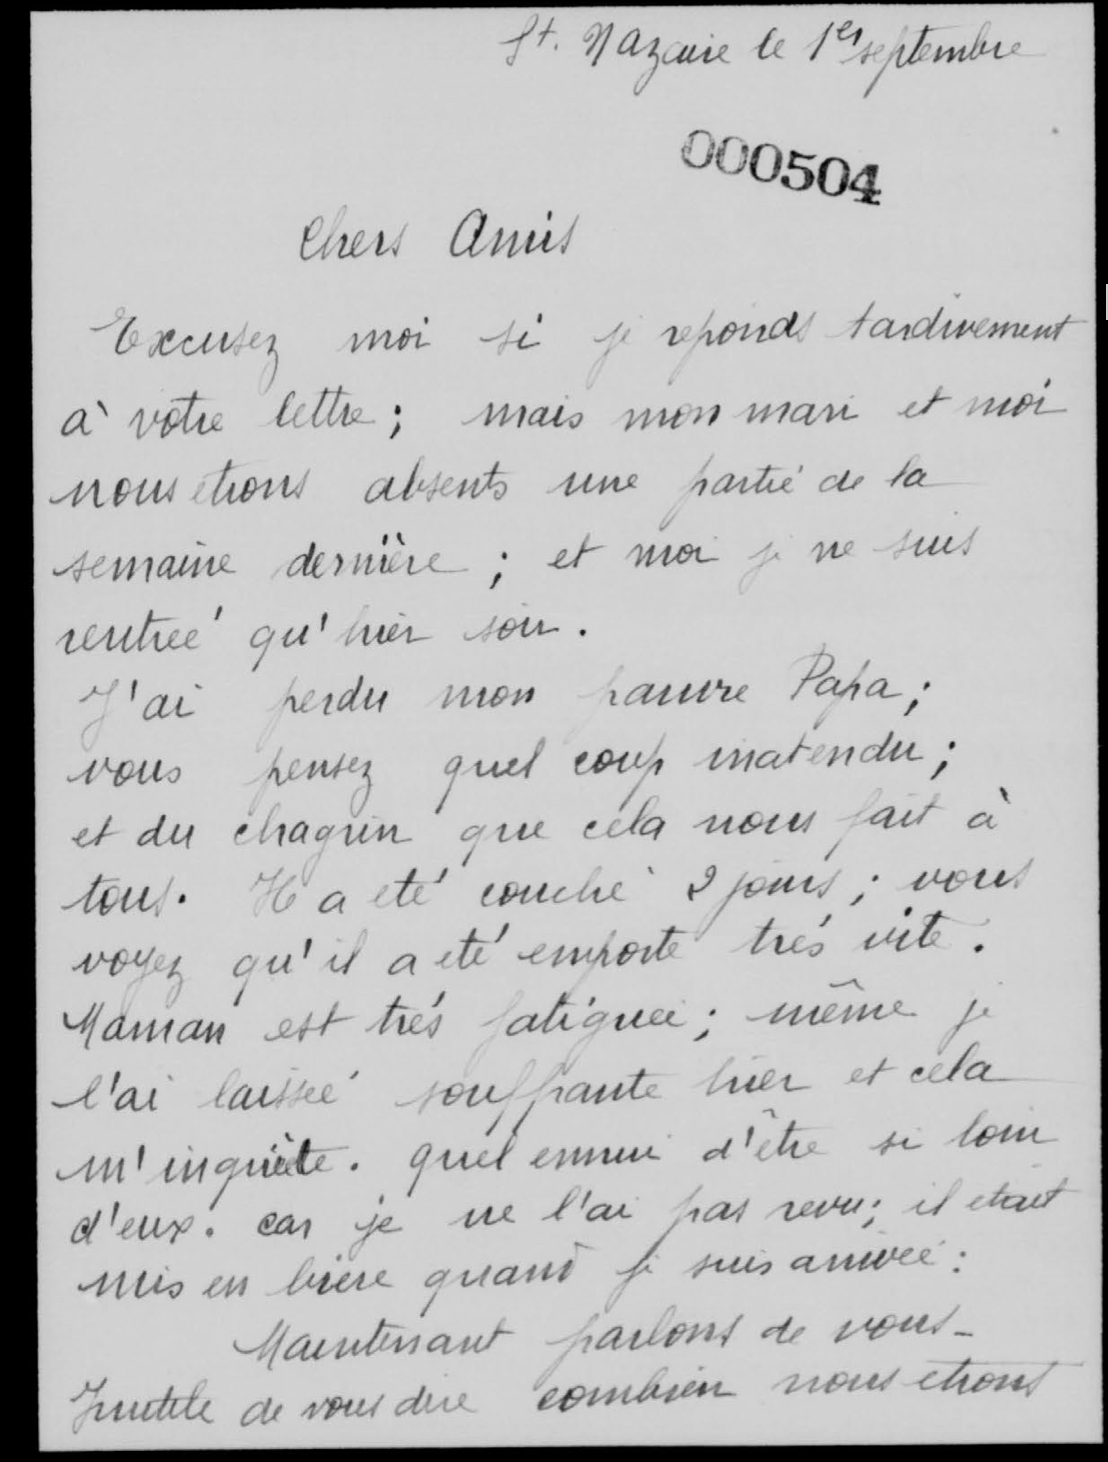 St. Nazaire le 1er septembre
000504
Chers Amis
Excusez moi si je reponds tardivement
à votre lettre ; mais mon mari et moi
nous etions absents une partie de la
semaine dernière ; et moi je ne suis
rentreé qu'hier soir.
J'ai perdu mon pauvre Papa ;
vous pensez quel coup inatendu ;
et du chagrin que cela nous fait à
tous. Il a eté couché 2 jours ; vous
voyez qu'il a eté emporté trés vite.
Maman est trés fatiguée ; même je
l'ai laisseé souffrante hier et cela
m'inquiète. quel ennui d'être si loin
d'eux. car je ne l'ai pas revu ; il etait
mis en biere quand je suis arrivée :
Maintenant parlons de vous -
Inutile de vous dire combien nous etions